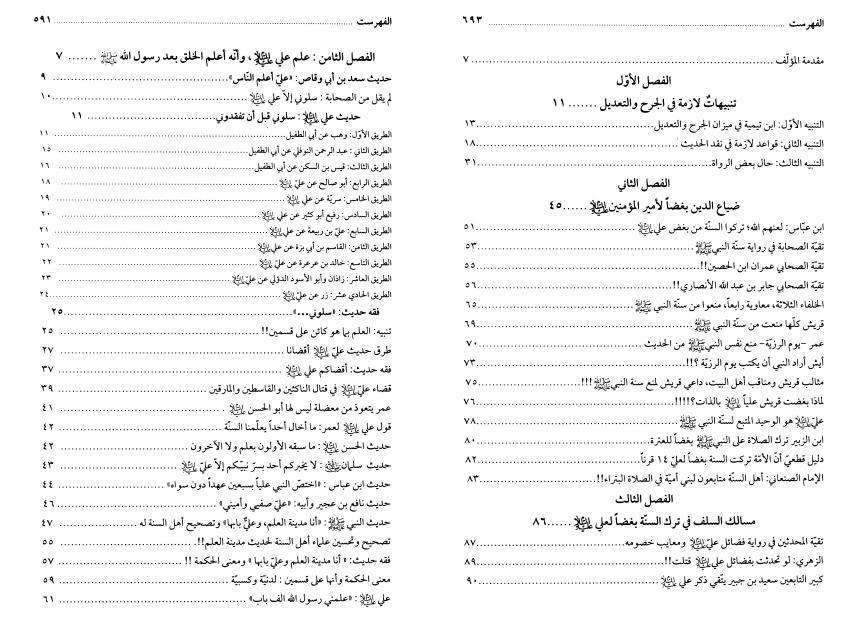 الفهرست ..... ٦٩٣
مقدمة المؤلّف ..... ٧
الفصل الأوّل
تنبيهاتٌ لازمة في الجرح والتعديل ....... ١١
التنبيه الأوّل: ابن تيمية في ميزان الجرح والتعديل ..... ١٣
التنبيه الثاني: قواعد لازمة في نقد الحديث ..... ١٨
التنبيه الثالث: حال بعض الرواة ..... ٣١
الفصل الثاني
ضياع الدين بغضاً لأمير المؤمنين ﷺ ...... ٤٥
ابن عبّاس: لعنهم الله؛ تركوا السنّة من بغض علي ..... ٥١
تقيّة الصحابة في رواية سنّة النبي ﷺ ..... ٥٣
تقيّة الصحابي عمران ابن الحصين!! ..... ٥٥
تقيّة الصحابي جابر بن عبد الله الأنصاري!! ..... ٥٦
الخلفاء الثلاثة، معاوية رابعاً، منعوا من سنّة النبي ﷺ ..... ٦٥
قريش كلّها منعت من سنّة النبي ﷺ ..... ٦٩
عمر -يوم الرزيّة- منع نفس النبي ﷺ من الحديث ..... ٧٠
أيش أراد النبي أن يكتب يوم الرزيّة ؟!! ..... ٧٣
مثالب قريش ومناقب أهل البيت، داعي قريش لمنع سنة النبي ﷺ!!! ..... ٧٥
لماذا بغضت قريش علياً بالذات؟!!!! ..... ٧٦
عليّ هو الوحيد المتبع لسنّة النبي ﷺ ..... ٧٨
ابن الزبير ترك الصلاة على النبي ﷺ بغضاً للعترة ..... ٨٠
دليل قطعيّ أنّ الأمّة تركت السنة بغضاً لعليّ ١٤ قرناً ..... ٨٢
الإمام الصنعاني: أهل السنّة متابعون لبني أميّة في الصلاة البتراء!! ..... ٨٣
الفصل الثالث
مسالك السلف في ترك السنّة بغضاً لعلي ...... ٨٦
تقيّة المحدثين في رواية فضائل عليّ ومعايب خصومه ..... ٨٧
الزهري: لو تحدثت بفضائل علي قتلت!! ..... ٨٩
كبير التابعين سعيد بن جبير يتّقي ذكر علي ..... ٩٠
الفهرست ..... ٥٩١
الفصل الثامن : علم علي ، وأنّه أعلم الخلق بعد رسول الله ﷺ ....... ٧
حديث سعد بن أبي وقاص: «عليّ أعلم النّاس» ..... ٩
لم يقل من الصحابة : سلوني إلاّ علي ..... ١٠
حديث علي : سلوني قبل أن تفقدوني ..... ١١
الطريق الأوّل: وهب عن أبي الطفيل ..... ١١
الطريق الثاني : عبد الرحمن النوفلي عن أبي الطفيل ..... ١٥
الطريق الثالث: قيس بن السكن عن أبي الطفيل ..... ١٦
الطريق الرابع: أبو صالح عن عليّ ..... ١٨
الطريق الخامس: سريّة عن علي ..... ١٩
الطريق السادس: رفيع أبو كثير عن علي ..... ٢٠
الطريق السابع: عليّ بن ربيعة عن علي ..... ٢١
الطريق الثامن: القاسم بن أبي بزة عن علي ..... ٢١
الطريق التاسع: خالد بن عرعرة عن علي ..... ٢٢
الطريق العاشر: زاذان وأبو الأسود الدؤلي عن علي ..... ٢٣
الطريق الحادي عشر: زر عن علي ..... ٢٤
فقه حديث: «سلوني...» ..... ٢٥
تنبيه: العلم بما هو كائن على قسمين!! ..... ٢٥
طرق حديث عليّ أقضانا ..... ٢٧
فقه حديث: أقضاكم علي ..... ٣٧
قضاء عليّ في قتال الناكثين والقاسطين والمارقين ..... ٣٩
عمر يتعوذ من معضلة ليس لها أبو الحسن ..... ٤١
قول علي لعمر: ما أخال أحداً يعلّمنا السنّة ..... ٤٢
حديث الحسن : ما سبقه الأولون بعلم ولا الآخرون ..... ٤٢
حديث سلمان : لا يخبركم أحد بسرّ نبيّكم إلاّ عليّ ..... ٤٣
حديث ابن عباس : «اختصّ النبي علياً بسبعين عهداً دون سواه» ..... ٤٤
حديث نافع بن عجير وأبيه: «عليّ صفيي وأميني» ..... ٤٦
حديث النبي ﷺ: «أنا مدينة العلم، وعليٌّ بابها» وتصحيح أهل السنة له ..... ٤٧
تصحيح وتحسين علماء أهل السنة لحديث مدينة العلم!! ..... ٥٥
فقه حديث: « أنا مدينة العلم وعليّ بابها » ومعنى الحكمة !! ..... ٥٧
معنى الحكمة وأنها على قسمين : لدنيّة وكسبيّة ..... ٥٩
علي : «علمني رسول الله الف باب» ..... ٦١